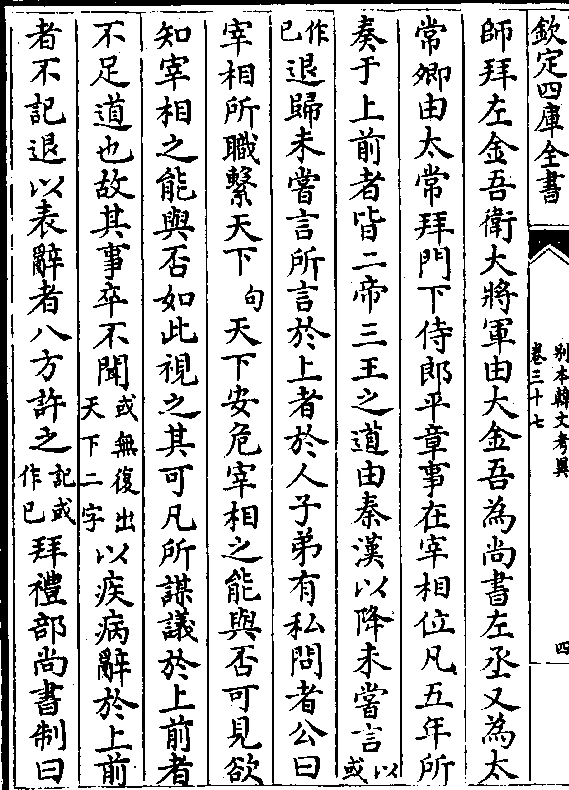 欽定四庫全書
別本韓文考異
卷三十七
四
師拜左金吾衛大將軍由大金吾為尚書左丞又為太
常卿由太常拜門下侍郎平章事在宰相位凡五年所
奏于上前者皆二帝三王之道由秦漢以降未嘗言以或
作已退歸未嘗言所言於上者於人子弟有私問者公曰
宰相所職繫天下句天下安危宰相之能與否可見欲
知宰相之能與否如此視之其可凡所謀議於上前者
不足道也故其事卒不聞或無復出天下二字以疾病辭於上前
者不記退以表辭者八方許之記或作已拜禮部尚書制曰